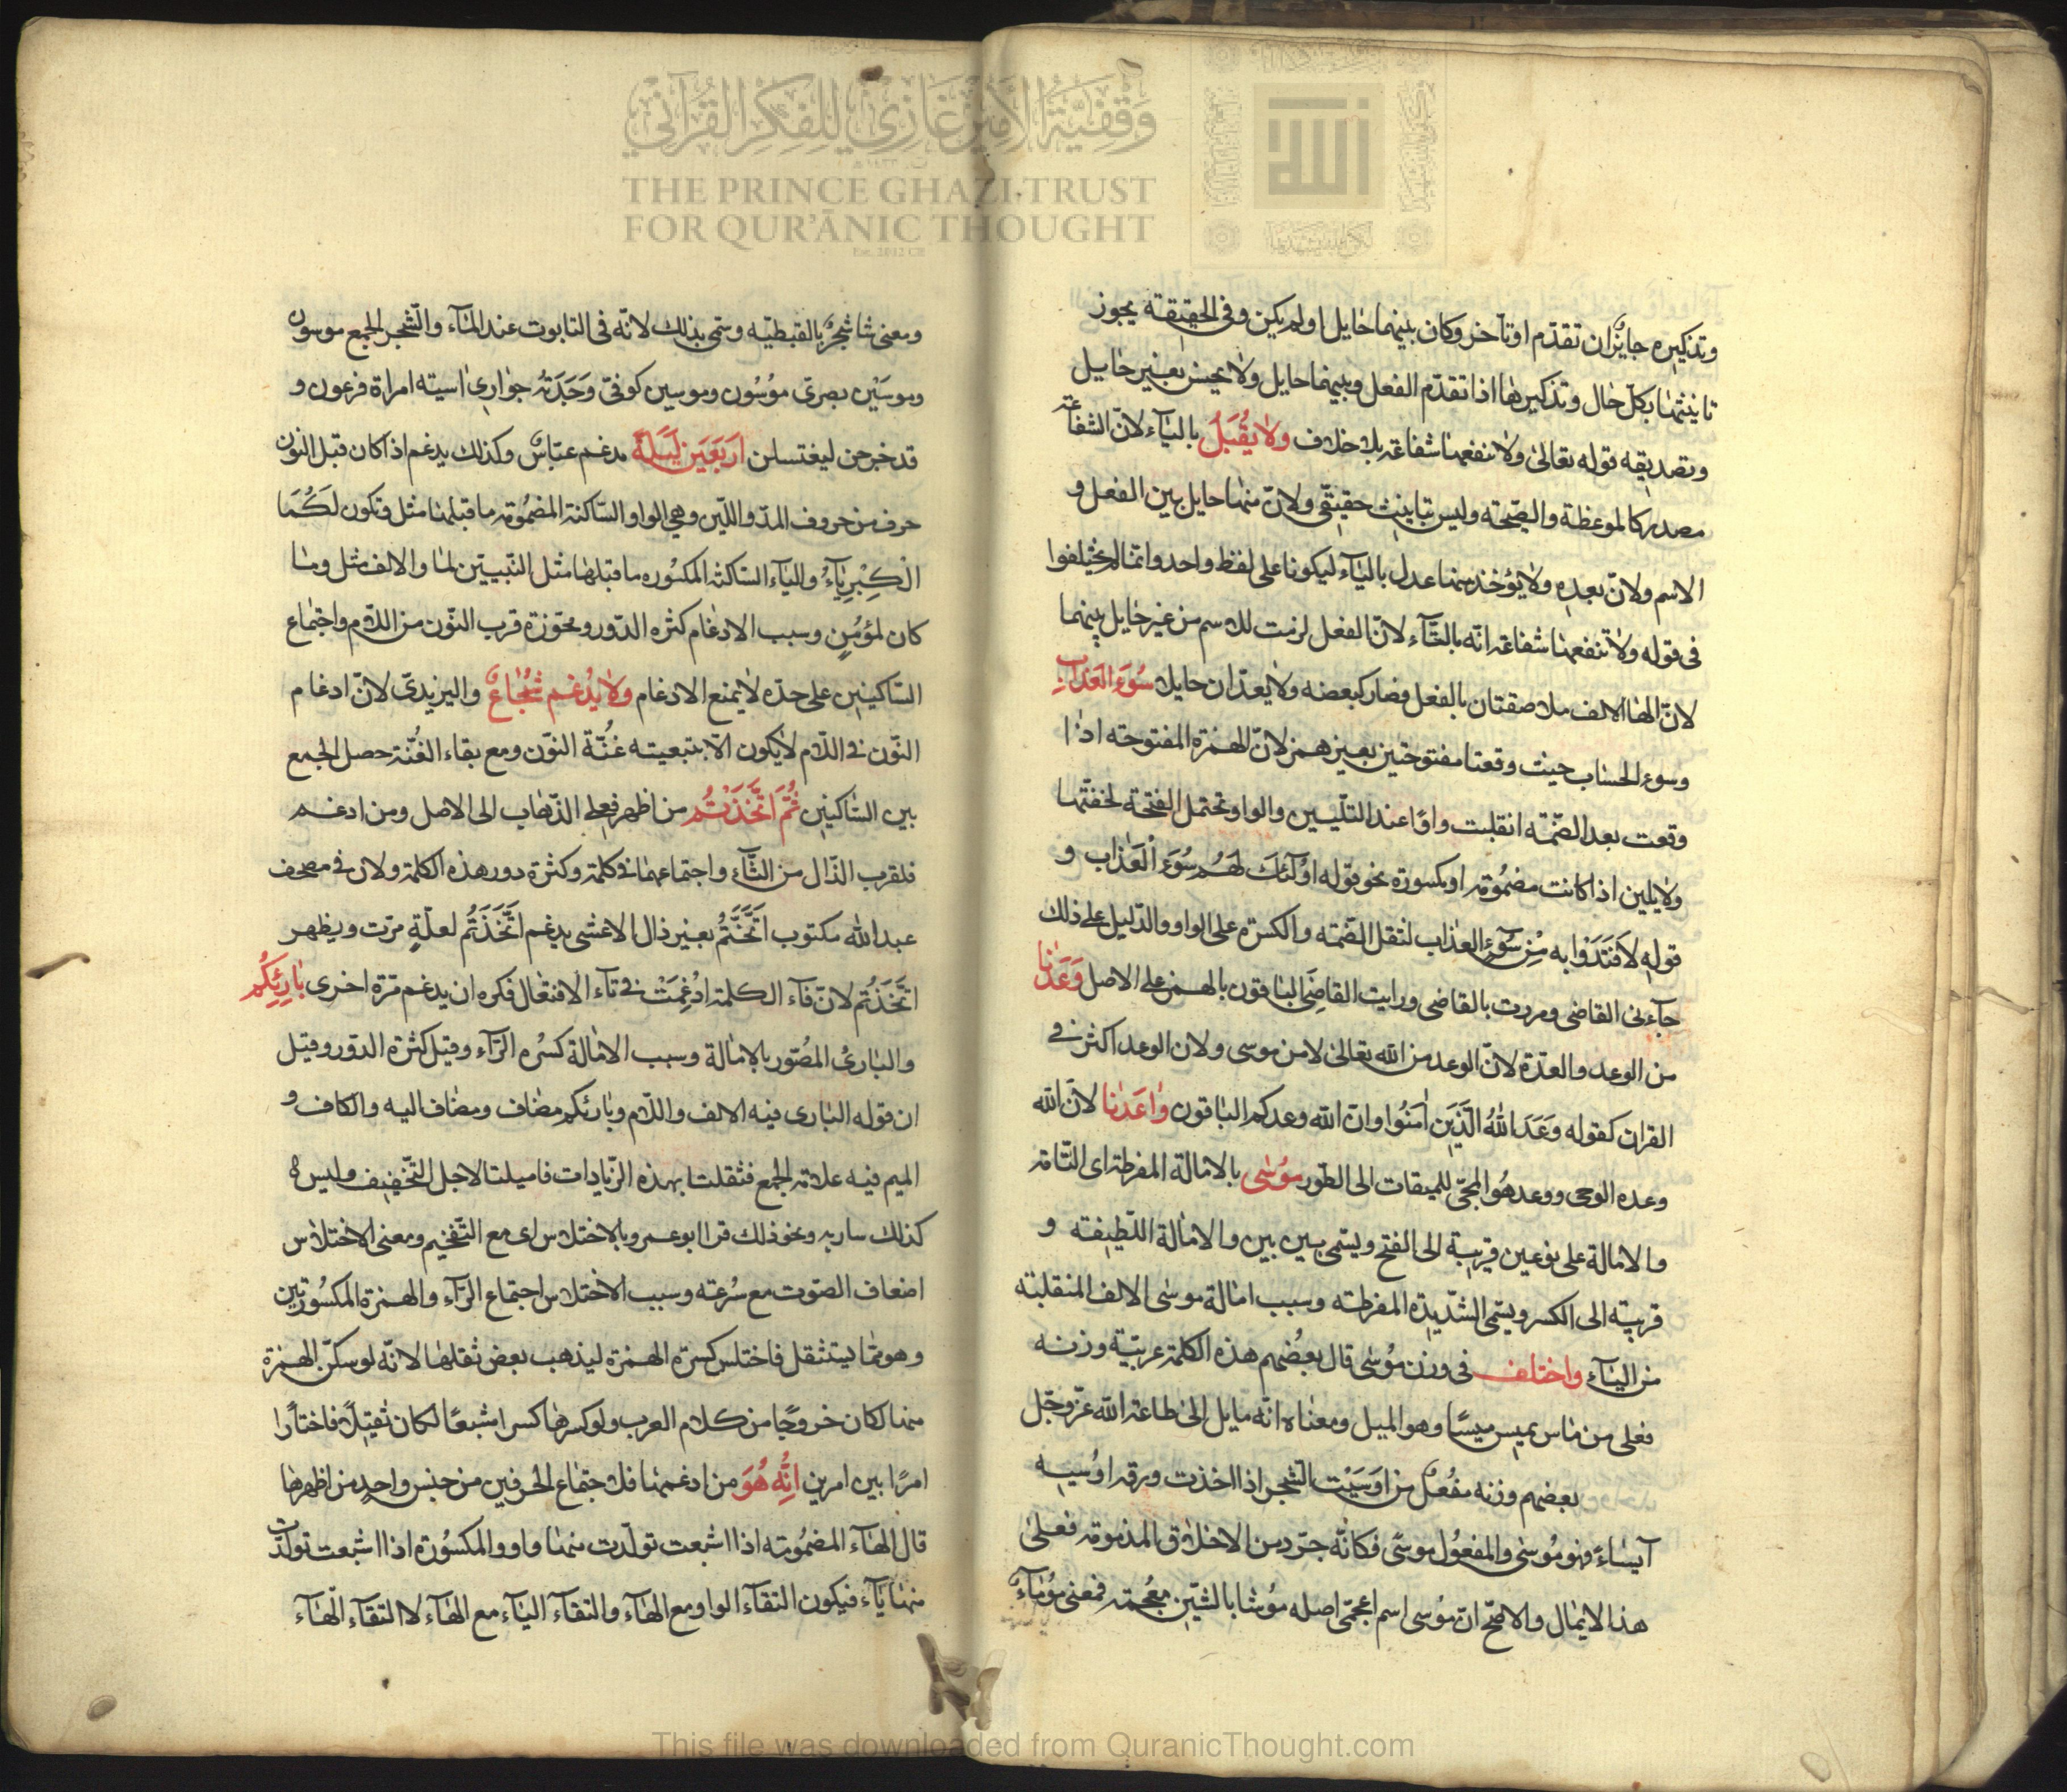 وقفية الأمير غازي للفكر القرآني
THE PRINCE GHAZI TRUST
FOR QUR'ĀNIC THOUGHT
وتذكيره جايزان تقدّم او تآخر وكان بينهما حايل اولم يكن وفى الحقيقة يجوز
تانيثها بكل حال وتذكيرها اذا تقدّم الفعل وبينهما حايل ولا يحسن بغير حايل
وتصديقه قوله تعالى ولا تنفعها شفاعة بلا خلاف ولا يُقْبَلُ باليآء لانّ الشفاعة
مصدر كالموعظة والصّيحة وليس تانيث حقيقىّ ولانّ منها حايل بين الفعل و
الاسم ولانّ بعده ولا يؤخذ منها عدل باليآء ليكونا على لفظ واحد وانّما لم يختلفوا
فى قوله ولا تنفعها شفاعة انّه بالتّآء لانّ الفعل لزمت للاسم من غير حايل بينهما
لانّ الهاا الالف ملاصقتان بالفعل فصار كبعضه ولا يعدّان حايلا سُوَءَ العَذَابِ
وسوء الحساب حيث وقعتا مفتوحتين بغير همز لانّ الهمزة المفتوحة اذا
وقعت بعد الضّمّة انقلبت واوًا عند التّليين والواو تحتمل الفتحة لخفّتها
ولا يلين اذا كانت مضمُومة او مكسورة نحو قوله اوُلٓئكَ لَهُم سُوَءُ الْعَذاب و
قوله لَافْتَدَوْا به مِنْ سُوٓءِ العذاب لثقل الضّمّة والكسرة على الواو والدّليل على ذلك
جآءنى القاضى ومررت بالقاضى ورايت القاضىَ الباقون بالهمز على الاصل وَعَدْنا
من الوعد والعدّة لانّ الوعد من الله تعالى لا من موسى ولان الوعد اكثر فى
القران كقوله وَعَدَ اللهُ الّذَينَ اٰمَنُوا وانّ الله وعدكم الباقون وٰاعَدْنا لانّ الله
وعده الوحى ووعد هُو المجئ للميقات الى الطّور مُوسٰى بالامالة المفرطة اى التّامّة
والامالة على نوعين قريبة الى الفتح ويسمّى بين بين والامالة اللّطيفة و
قريبة الى الكسر ويسمّى الشّديدة المفرطة وسبب امالة موسٰى الالف المنقلبة
من اليآء واختلف فى وزن مُوسٰى قال بعُضهم هذه الكلمة عربيّة وزنه
فعلى من مٰاس يميس ميسًا وهو الميل ومعناه انّه مايل الى طاعة الله عزّ وجّل
بعضهم وزنه مفُعلٌ من اوَسَيْت الشّجر اذا اخذت ورقه اوُسيه
آيساءً فهو مُوسٰى والمفعُول موسًى فكانّه جرّد من الاخلاق المذمومة فعلىٰ
هذا لا يمال والاصّح انّ مُوسى اسم اعجمّى اصله مُوشا بالشّين معُجمة فمعنى مُو مٰآءٌ
ومعنى شا شجرٌ بالقبطيّه وسّمى بذلك لانّه فى التابوت عند المٰآء والشّجر الجمع موسوْن
وموسَيْن بصرىّ مُوسُون وموسين كوفىّ وَجَدَتهُ جوٰارى اسيته امراة فرعون و
قد خرجن ليغتسلن اَرْبَعَينَ لَيْلَةً مدغم عبّاسٌ وكذلك يدغم اذا كان قبل النون
حرف من حروف المدّ واللّين وهى الواو السّاكنة المضمُومة ما قبلها مثل وتكون لَكُمَا
الْكِبْرِيٰآءُ واليٰآء السّاكنة المكسُوره ما قبلها مثل النّبيّين لما والالف مثل ومٰا
كان لمُؤمُنٍ وسبب الادغٰام كثره الدّور ومجّوزة قرب النّون من اللّام واجتمٰاع
السّاكنين على حدّه لا يمنع الادغام ولا يُدغم شُجٰاعٌ واليزيدىّ لانّ ادغام
النّون فى اللّام لا يكون الّا بتبعيته غُنّة النّون ومع بقاء الغُنّة حصل الجمع
بين السّاكنين ثُمّ اَتَّخَذْتُم من اظهر فعلى الذّهٰاب الى الاصل ومن ادغم
فلقرب الذّال من التّآء واجتماعهما فى كلمة وكثرة دور هذه الكلمة ولان فى مصحف
عبد الله مكتوب اتَّخَتُّم بغير ذال الاعشى يدغم اتَّخَذَتُم لعلّةٍ مرّت ويظهر
اتَّخَذَتُم لانّ فآء الكلمة ادُغِمَتْ فى تآء الافتعال فكره ان يدغم مرّة اخرى بٰارِئِكُم
والبٰارئُ المصُوّر بالامٰالة وسبب الامٰالة كسُره الرّآء وقيل كثرة الدّور وقيل
ان قوله البٰارى فيه الالف واللّام وبارئكم مضٰاف ومضٰاف اليه والكاف و
الميم فيه علامة الجمع فثقلتا بهذه الزّيادات فاميلتا لاجل التّخفيف وليس
كذلك سارية ونحو ذلك قرا ابو عمرو بالاختلاس اى مع التّفخيم ومعنى الاختلاس
اضعاف الصّوت مع سُرعته وسبب الاختلاس اجتماع الرّآء والهمزة المكسُورتين
وهو ممّا يستثقل فاختلس كسرة الهمزة ليذهب بعض ثقلها لانّه لو سكّن الهمزة
منها لكان خروجًا من كلام العرب ولو كسرها كسرا مشبعًا لكان ثقيلًا فاختارا
امرًا بين امرين اِنَّه هُوَ من ادغمها فلاجتمٰاع الحرفين من جنس واحدٍ من اظهرها
قال الهآء المضمُومة اذا اشبعت تولّدت منها واو والمكسُورة اذا اشبعت تولّدت
منها يٰآء فيكون التقآء الواو مع الهآء والتقآء اليٰآء مع الهٰآء لا التقآء الهٰآء
This file was downloaded from QuranicThought.com